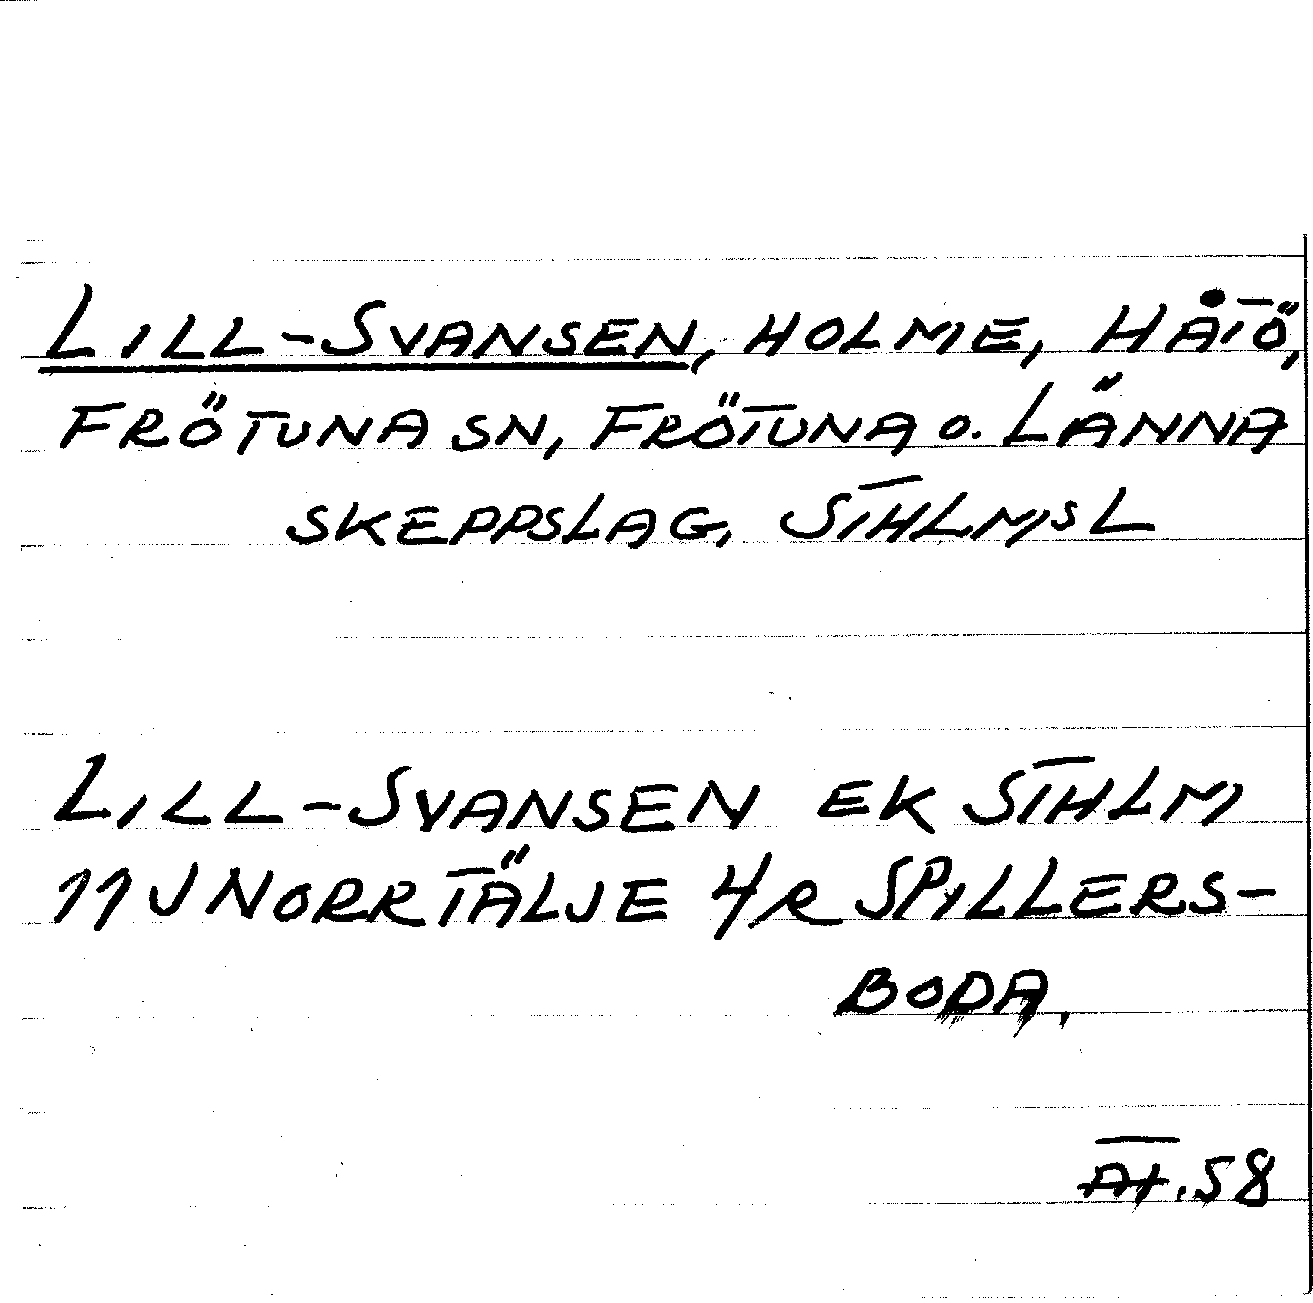 LILL-SVANSEN, HOLME, HÅTÖ,
FRÖTUNA SN, FRÖTUNA o. LÄNNA
SKEPPSLAG, STHLMSL
LILL-SVANSEN EK STHLM
11J NORRTÄLJE 4R SPILLERS-
BODA,
58